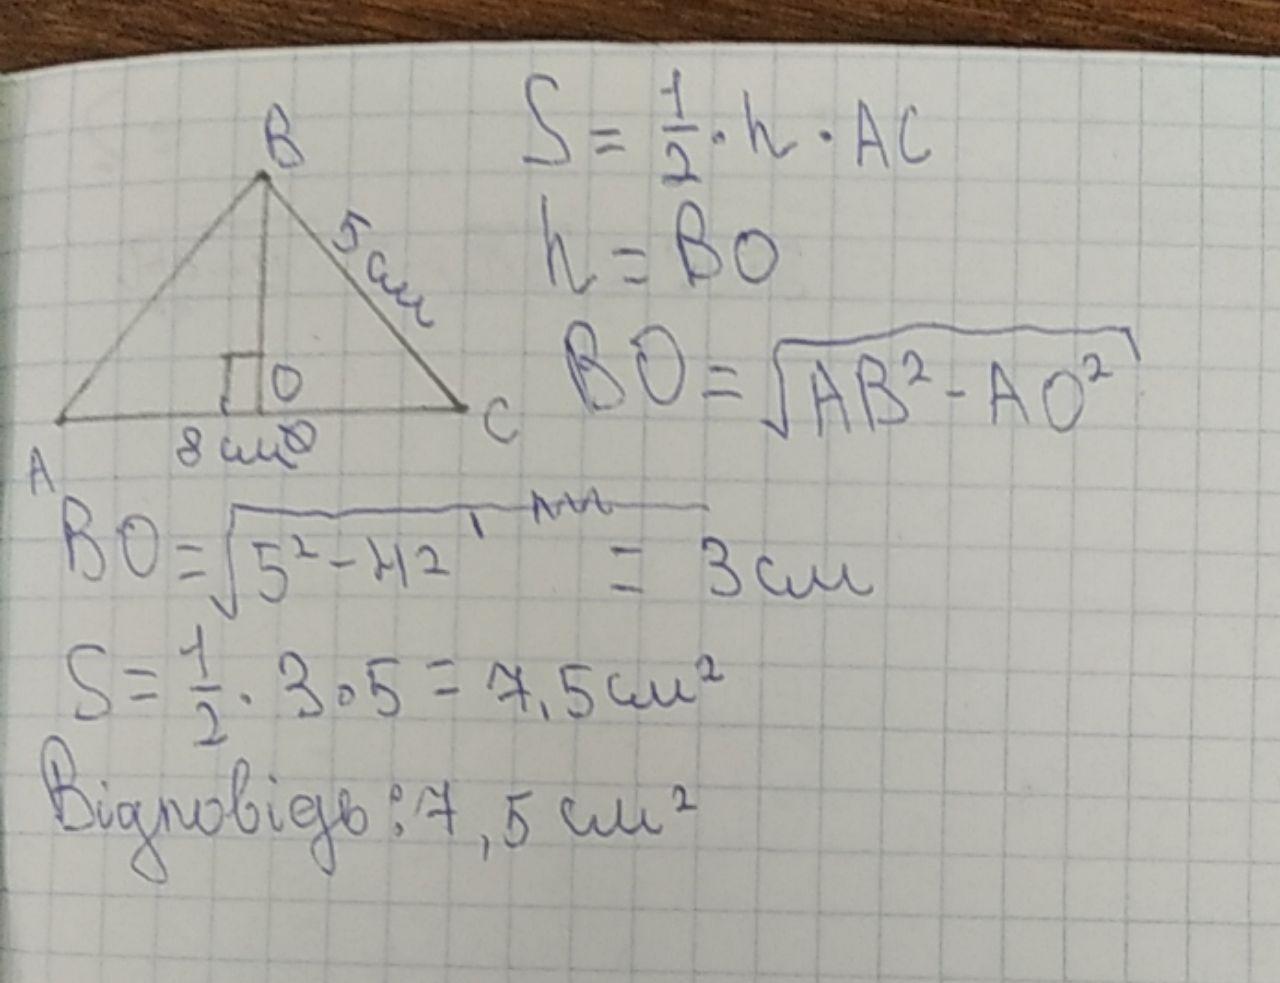 B
5 см
O
8 см
A
C
S = 1/2 · h · AC
h = BO
BO = √AB² - AO²
BO = √5² - 42 = 3 см
S = 1/2 · 3 · 5 = 7,5 см²
Відповідь: 7,5 см²